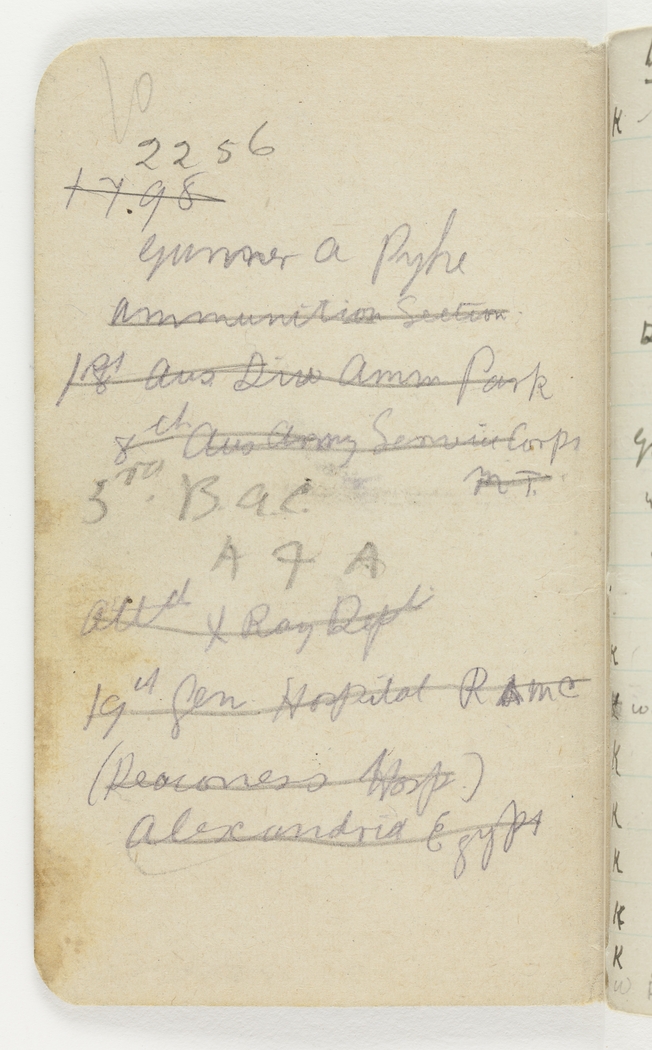 2256
1798
Gunner A Pyke
Ammunition Section
1st Aus Div Amm Park
8th Aus Army Service Corps
M.T.
3rd. B.A.C.
A F A
Attd X Ray Dept
19th Gen. Hospital RAMC
(Deaconess Hosp.)
Alexandria Egypt